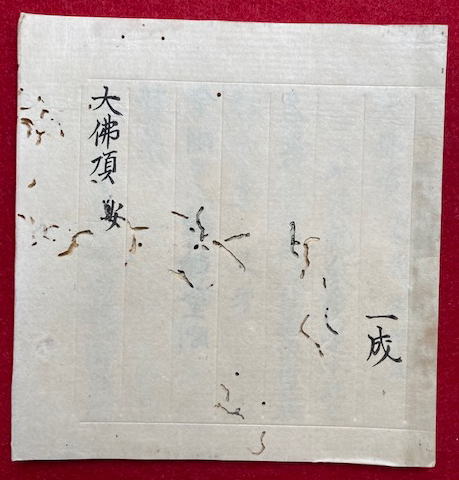 一成
大佛頂